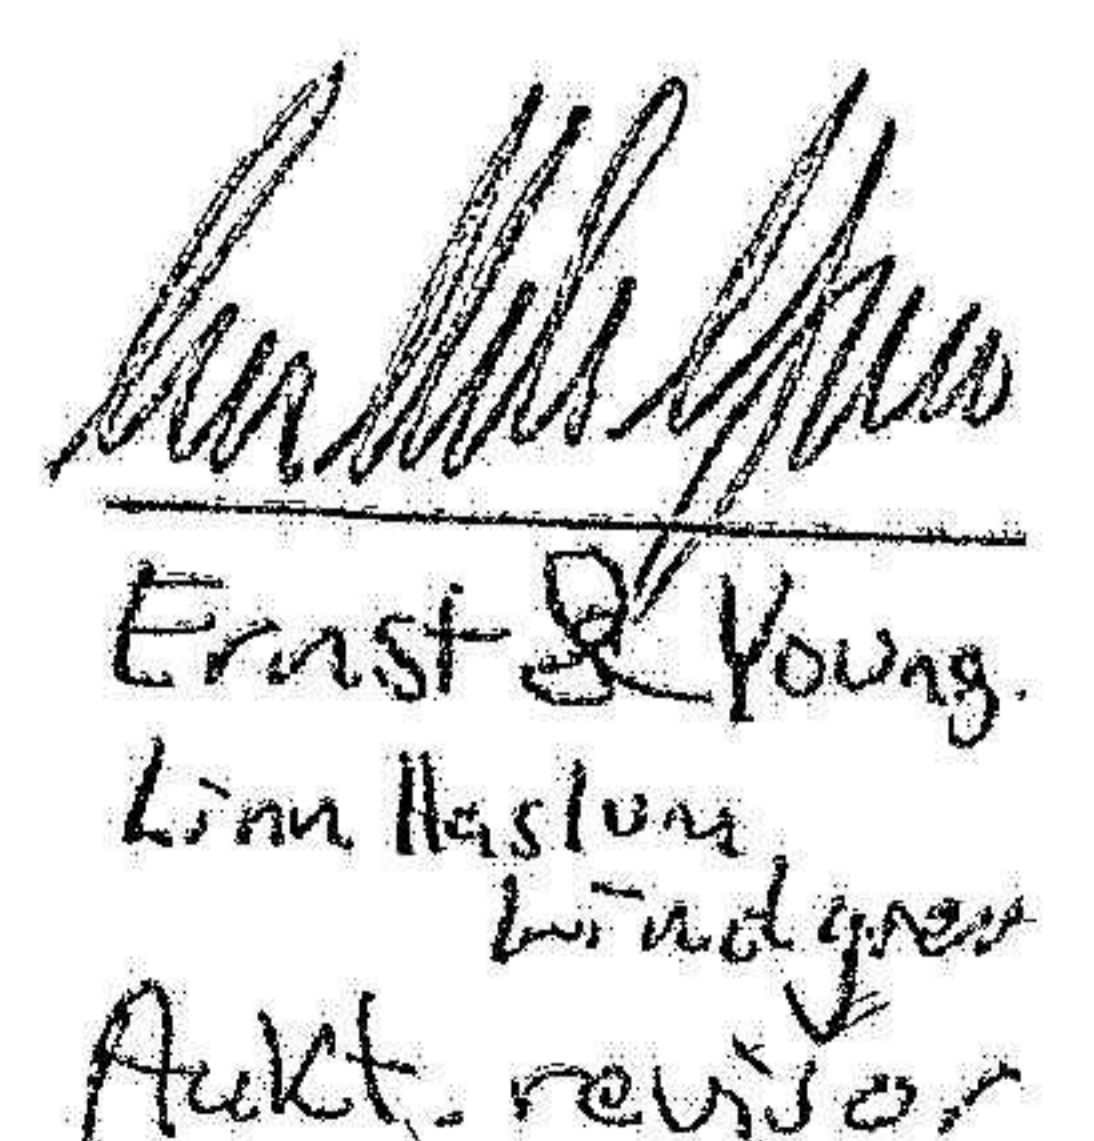 Ernst & Young.
Linn Haslum
Lindgren
Aukt. revisor